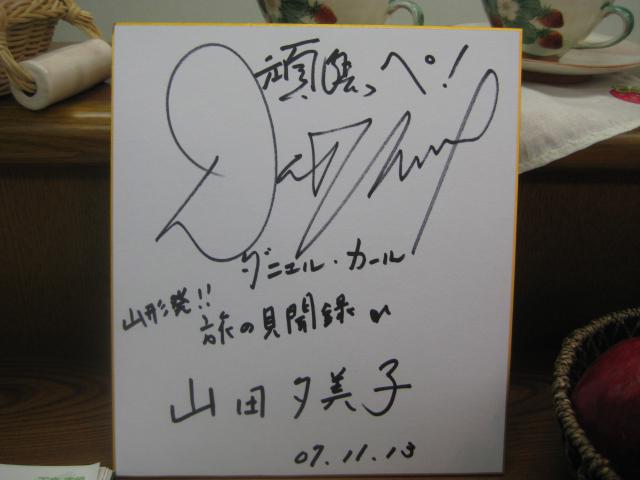 頑張っぺ!
ダニエル・カール
山形発!!
旅の見聞録
山田夕美子
07.11.13